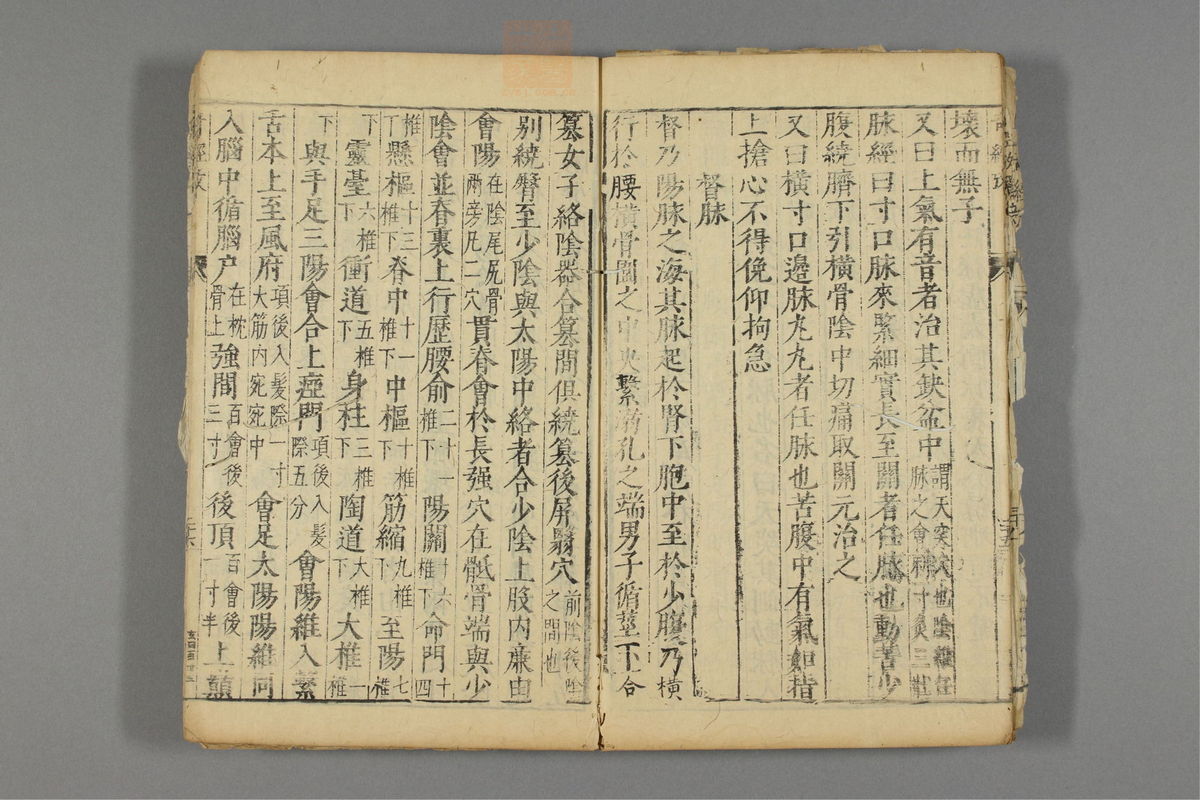 壞而無子
又曰上氣有音者治其缺盆中謂天突穴也陰維任脉之會刺一寸灸三壯
脉經曰寸口脉來緊細實長至關者任脉也動苦少
腹繞臍下引橫骨陰中切痛取關元治之
又曰橫寸口邊脉丸丸者任脉也苦腹中有氣如指
上搶心不得俛仰拘急
督脉
督乃陽脉之海其脉起於腎下胞中至於少腹乃橫
行於腰橫骨圍之中央繫溺孔之端男子循莖下合
篡女子絡陰器合篡間俱繞篡後屏翳穴前陰後陰之間也
别繞臀至少陰與太陽中絡者合少陰上股内廉由
會陽在陰尾尻骨兩旁凡二穴貫脊會於長强穴在骶骨端與少
陰會並脊裏上行歷腰俞二十一椎下陽關十六椎下命門十四
椎下懸樞十三椎下脊中十一椎下中樞十椎下筋縮九椎下至陽七椎
下靈臺六椎下衝道五椎下身柱三椎下陶道大椎下大椎一椎
下與手足三陽會合上瘂門項後入髮際五分會陽維入繫
舌本上至風府項後入髮際一寸大筋内宛宛中會足太陽陽維同
入腦中循腦户在枕骨上強間百會後三寸後頂百會後一寸半上巔